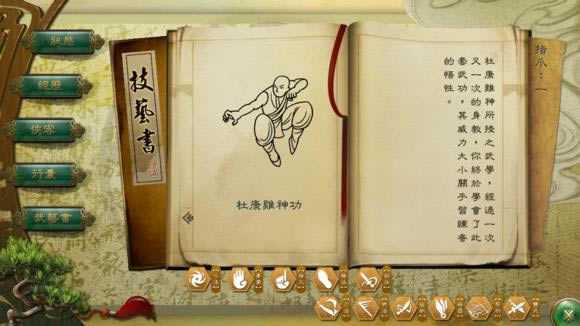 狀態
經歷
俠客
行囊
武藝書
技藝書
杜康雞神功
指爪：一
杜康雞神所授之武學，經過一次
又一次的身教，你終於學會了此
套武功，其威力大小關乎習練者
的悟性。